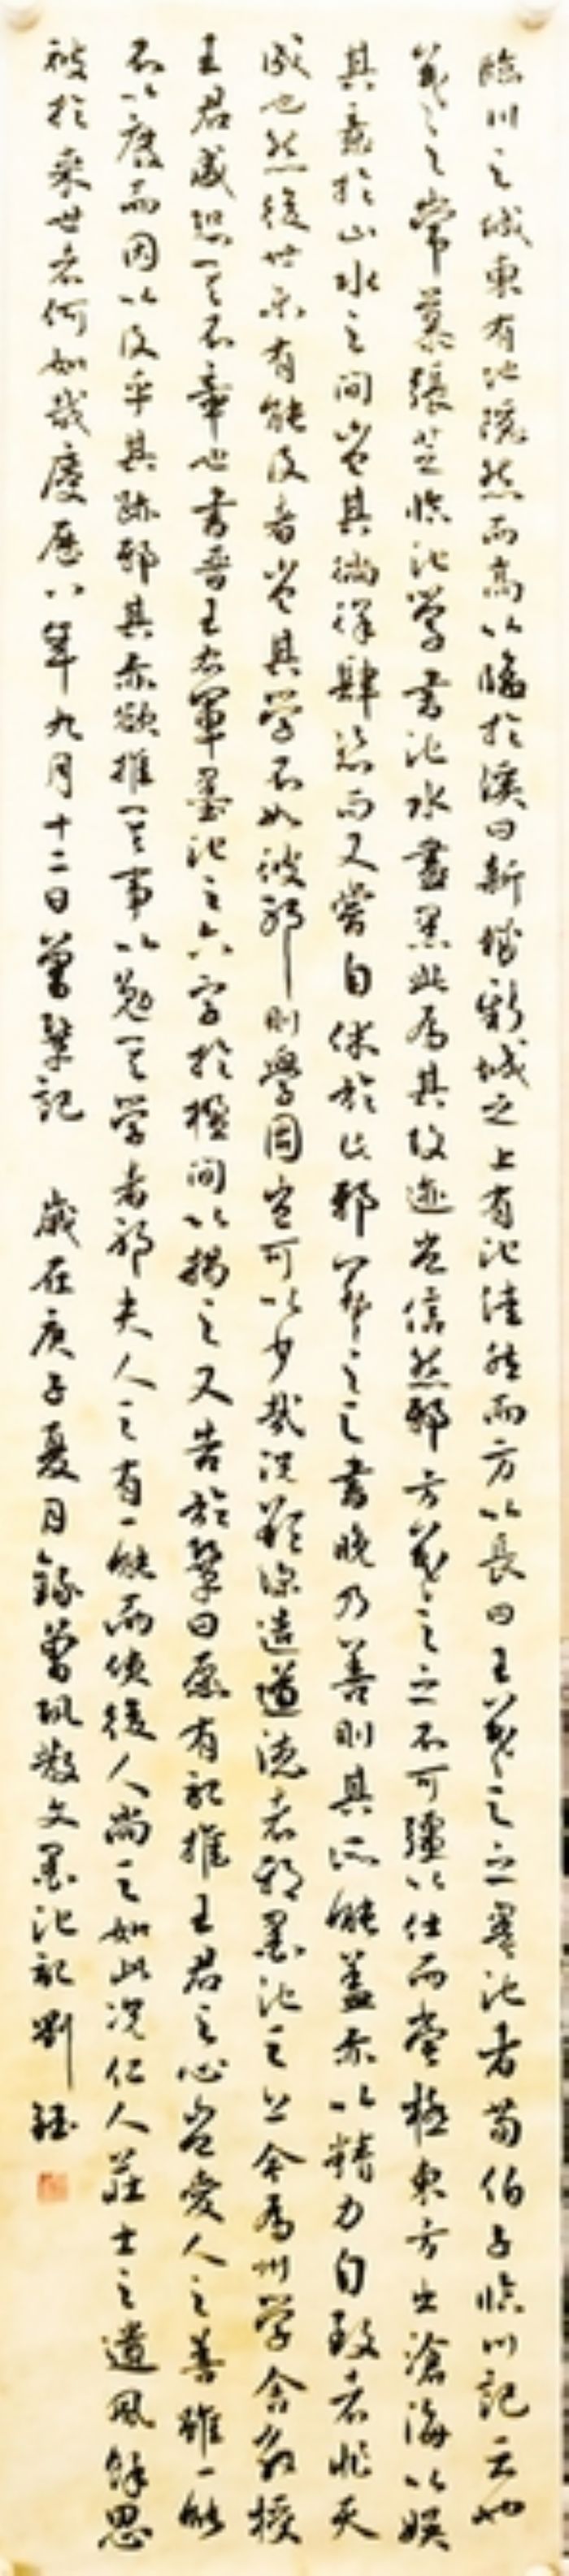 臨川之城東有地隱然而高以臨於溪曰新城新城之上有池窪然而方以長曰王羲之之墨池者荀伯子臨川記云也
羲之之嘗慕張芝臨池學書池水盡黑此為其故迹豈信然邪方羲之之不可彊以仕而嘗極東方出滄海以娛
其意於山水之間豈其徜徉肆恣而又嘗自休於此邪羲之之書晚乃善則其所能蓋亦以精力自致者非天
成也然後世未有能及者豈其學不如彼邪則學固豈可以少哉況欲深造道德者邪墨池之上今為州學舍教授
王君盛恐其不章也書晉王右軍墨池之六字於楹間以揭之又告於鞏曰願有記推王君之心豈愛人之善雖一能
不以廢而因以及乎其跡邪其亦欲推其事以勉其學者邪夫人之有一能而使後人尚之如此況仁人莊士之遺風餘思
被於來世者何如哉慶曆八年九月十二日曾鞏記 歲在庚子夏月錄曾巩散文墨池記劉